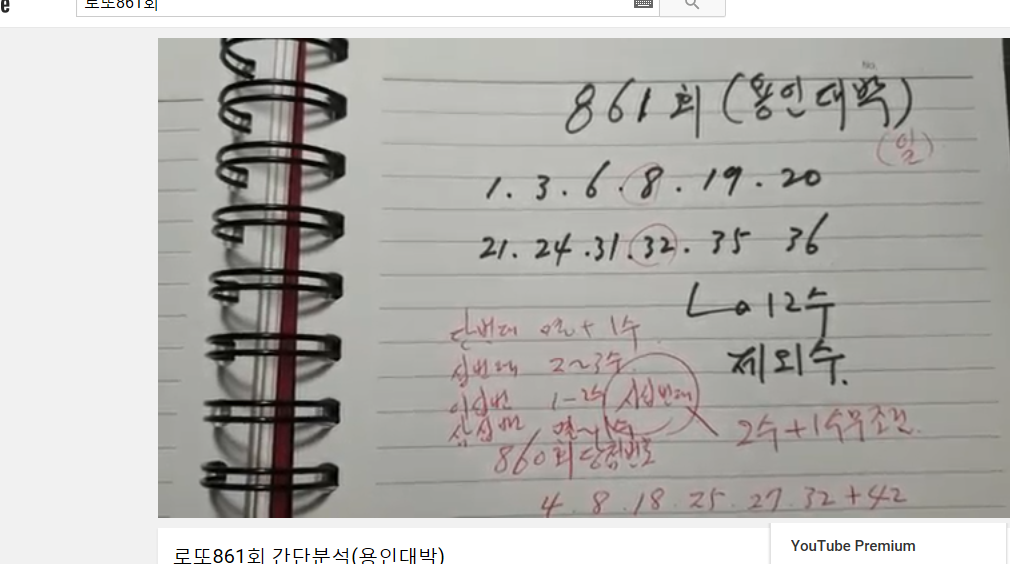 로또861회
861회 (용인대박)
(일)
1. 3. 6. 8. 19. 20
21. 24. 31. 32. 35 36
12수
제외수.
단번대 + 1수
십번대 2~3수
이십번 1-2수 사십번대
삼십번
2수+1수무조건
860회 당첨번호
4. 8. 18. 25. 27. 32+42
로또861회 간단분석(용인대박)
YouTube Premium